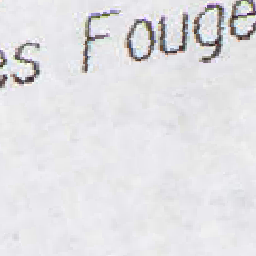 es Fouge